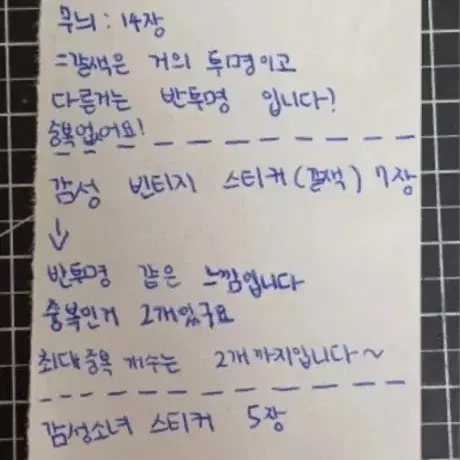 무늬 : 14장
=갈색은 거의 투명이고
다른거는 반투명 입니다!
중복없어요!
감성 빈티지 스티커(갈색) 7장
↓
반투명 같은 느낌입니다
중복인거 2개있구요
최대중복 개수는 2개까지입니다~
감성소녀 스티커 5장